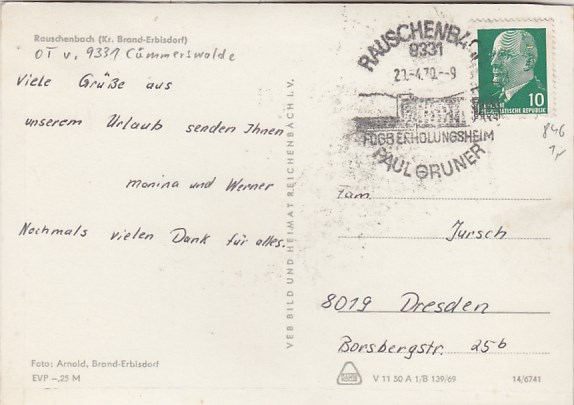 Rauschenbach (Kr. Brand-Erbisdorf)
OT v. 9331 Cämmerswalde
Viele Grüße aus
unserem Urlaub senden Ihnen
Monina und Werner
Nochmals vielen Dank für alles.
Foto: Arnold, Brand-Erbisdorf
EVP –,25 M
VEB BILD UND HEIMAT REICHENBACH I. V.
RAUSCHENBACH
9331
20.-4.70.--9
FDGB ERHOLUNGSHEIM
PAUL GRUNER
10
DEUTSCHE DEMOKRATISCHE REPUBLIK
846
1,-
Fam.
Jursch
8019 Dresden
Borsbergstr. 25b
V 11 50 A 1/B 139/69
14/6741